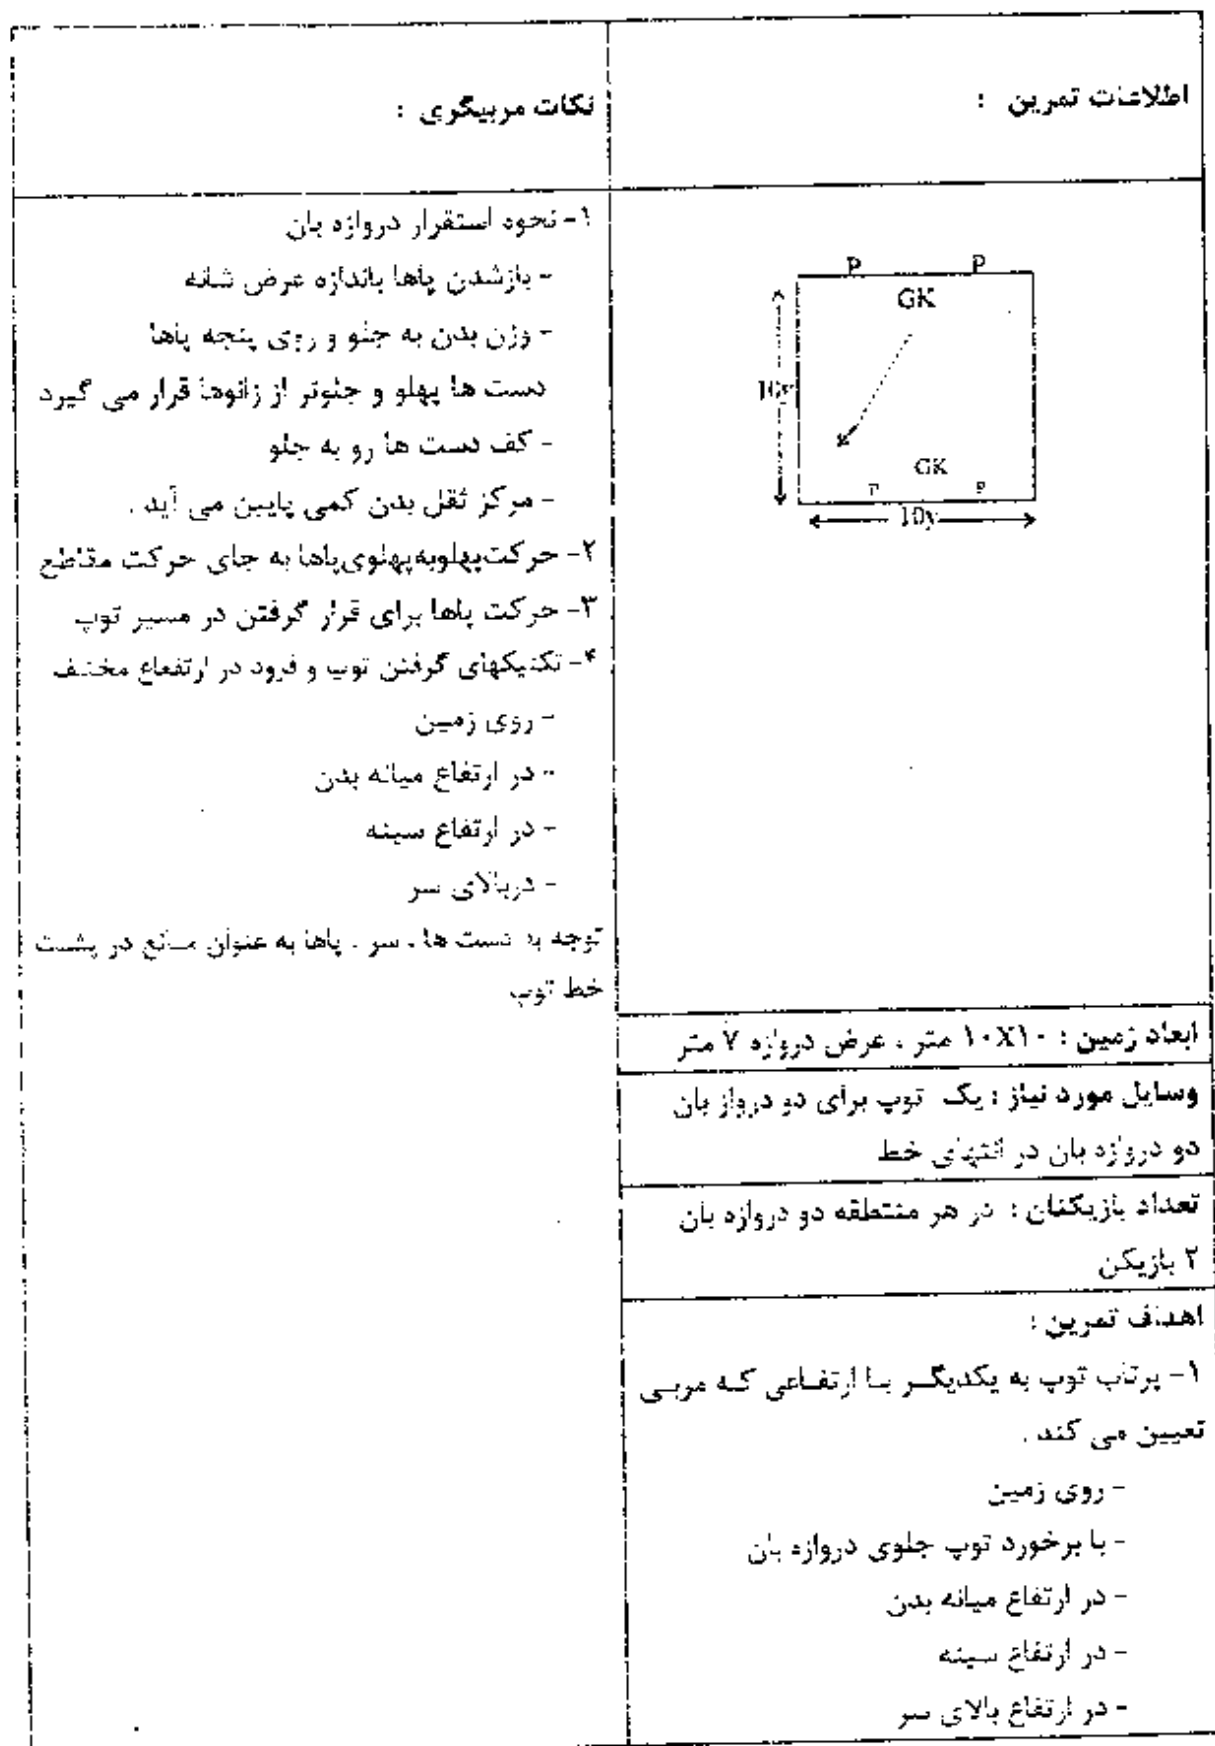 اطلاعات تمرین :
P P
GK
10y
GK
P P
10y
ابعاد زمین : ۱۰X۱۰ متر ، عرض دروازه ۷ متر
وسایل مورد نیاز : یک توپ برای دو درواز بان
دو دروازه بان در انتهای خط
تعداد بازیکنان : در هر منتطقه دو دروازه بان
۲ بازیکن
اهداف تمرین :
۱- پرتاب توپ به یکدیگر با ارتفاعی که مربی
تعیین می کند .
- روی زمین
- با برخورد توپ جلوی دروازه بان
- در ارتفاع میانه بدن
- در ارتفاع سینه
- در ارتفاع بالای سر
نکات مربیگری :
۱- نحوه استقرار دروازه بان
- بازشدن پاها باندازه عرض شانه
- وزن بدن به جلو و روی پنجه پاها
دست ها پهلو و جلوتر از زانوها قرار می گیرد
- کف دست ها رو به جلو
- مرکز ثقل بدن کمی پایین می آید .
۲- حرکت‌پهلوبه‌پهلوی‌پاها به جای حرکت مقاطع
۳- حرکت پاها برای قرار گرفتن در مسیر توپ
۴- تکنیکهای گرفتن توپ و فرود در ارتفعاع مختلف
- روی زمین
- در ارتفاع میانه بدن
- در ارتفاع سینه
- دربالای سر
توجه به دست ها ، سر ، پاها به عنوان مانع در پشت
خط توپ